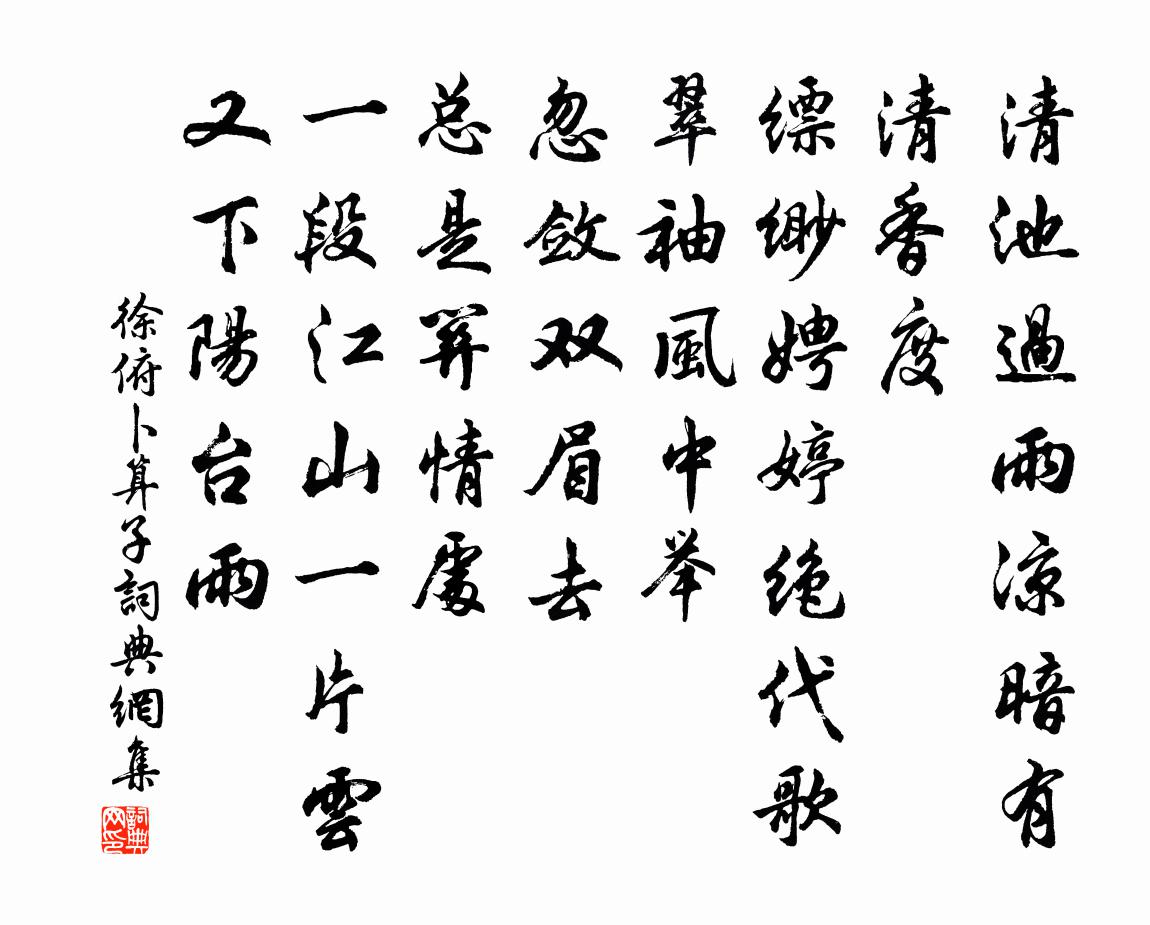 清池過雨涼暗有
清香度
縹缈娉婷绝代歌
翠袖風中举
忽敛双眉去
总是関情處
一段江山一片雲
又下陽台雨
徐俯卜算子詞典網集
詞典网印